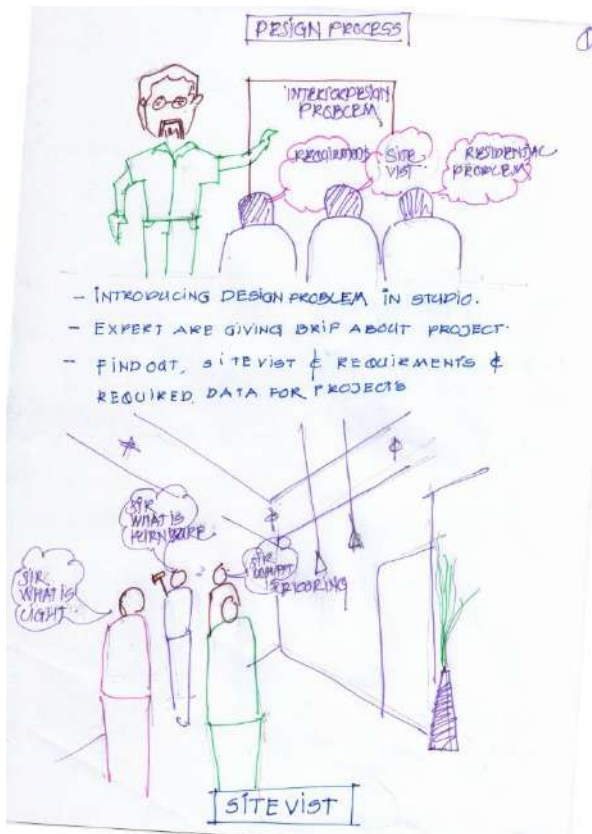 DESIGN PROCESS
1
INTERIOR DESIGN
PROBLEM
REQUIRMENTS
SITE
VIST
RESIDENTIAL
PROBLEM
- INTRODUCING DESIGN PROBLEM IN STUDIO.
- EXPERT ARE GIVING BRIF ABOUT PROJECT.
- FIND OUT, SITE VIST & REQUIRMENTS &
REQUIRED DATA FOR PROJECTS
SIR
WHAT IS
FURNITURE
SIR
WHAT IS
LIGHT
SIR
WHAT
IS FLOORING
SITE VIST